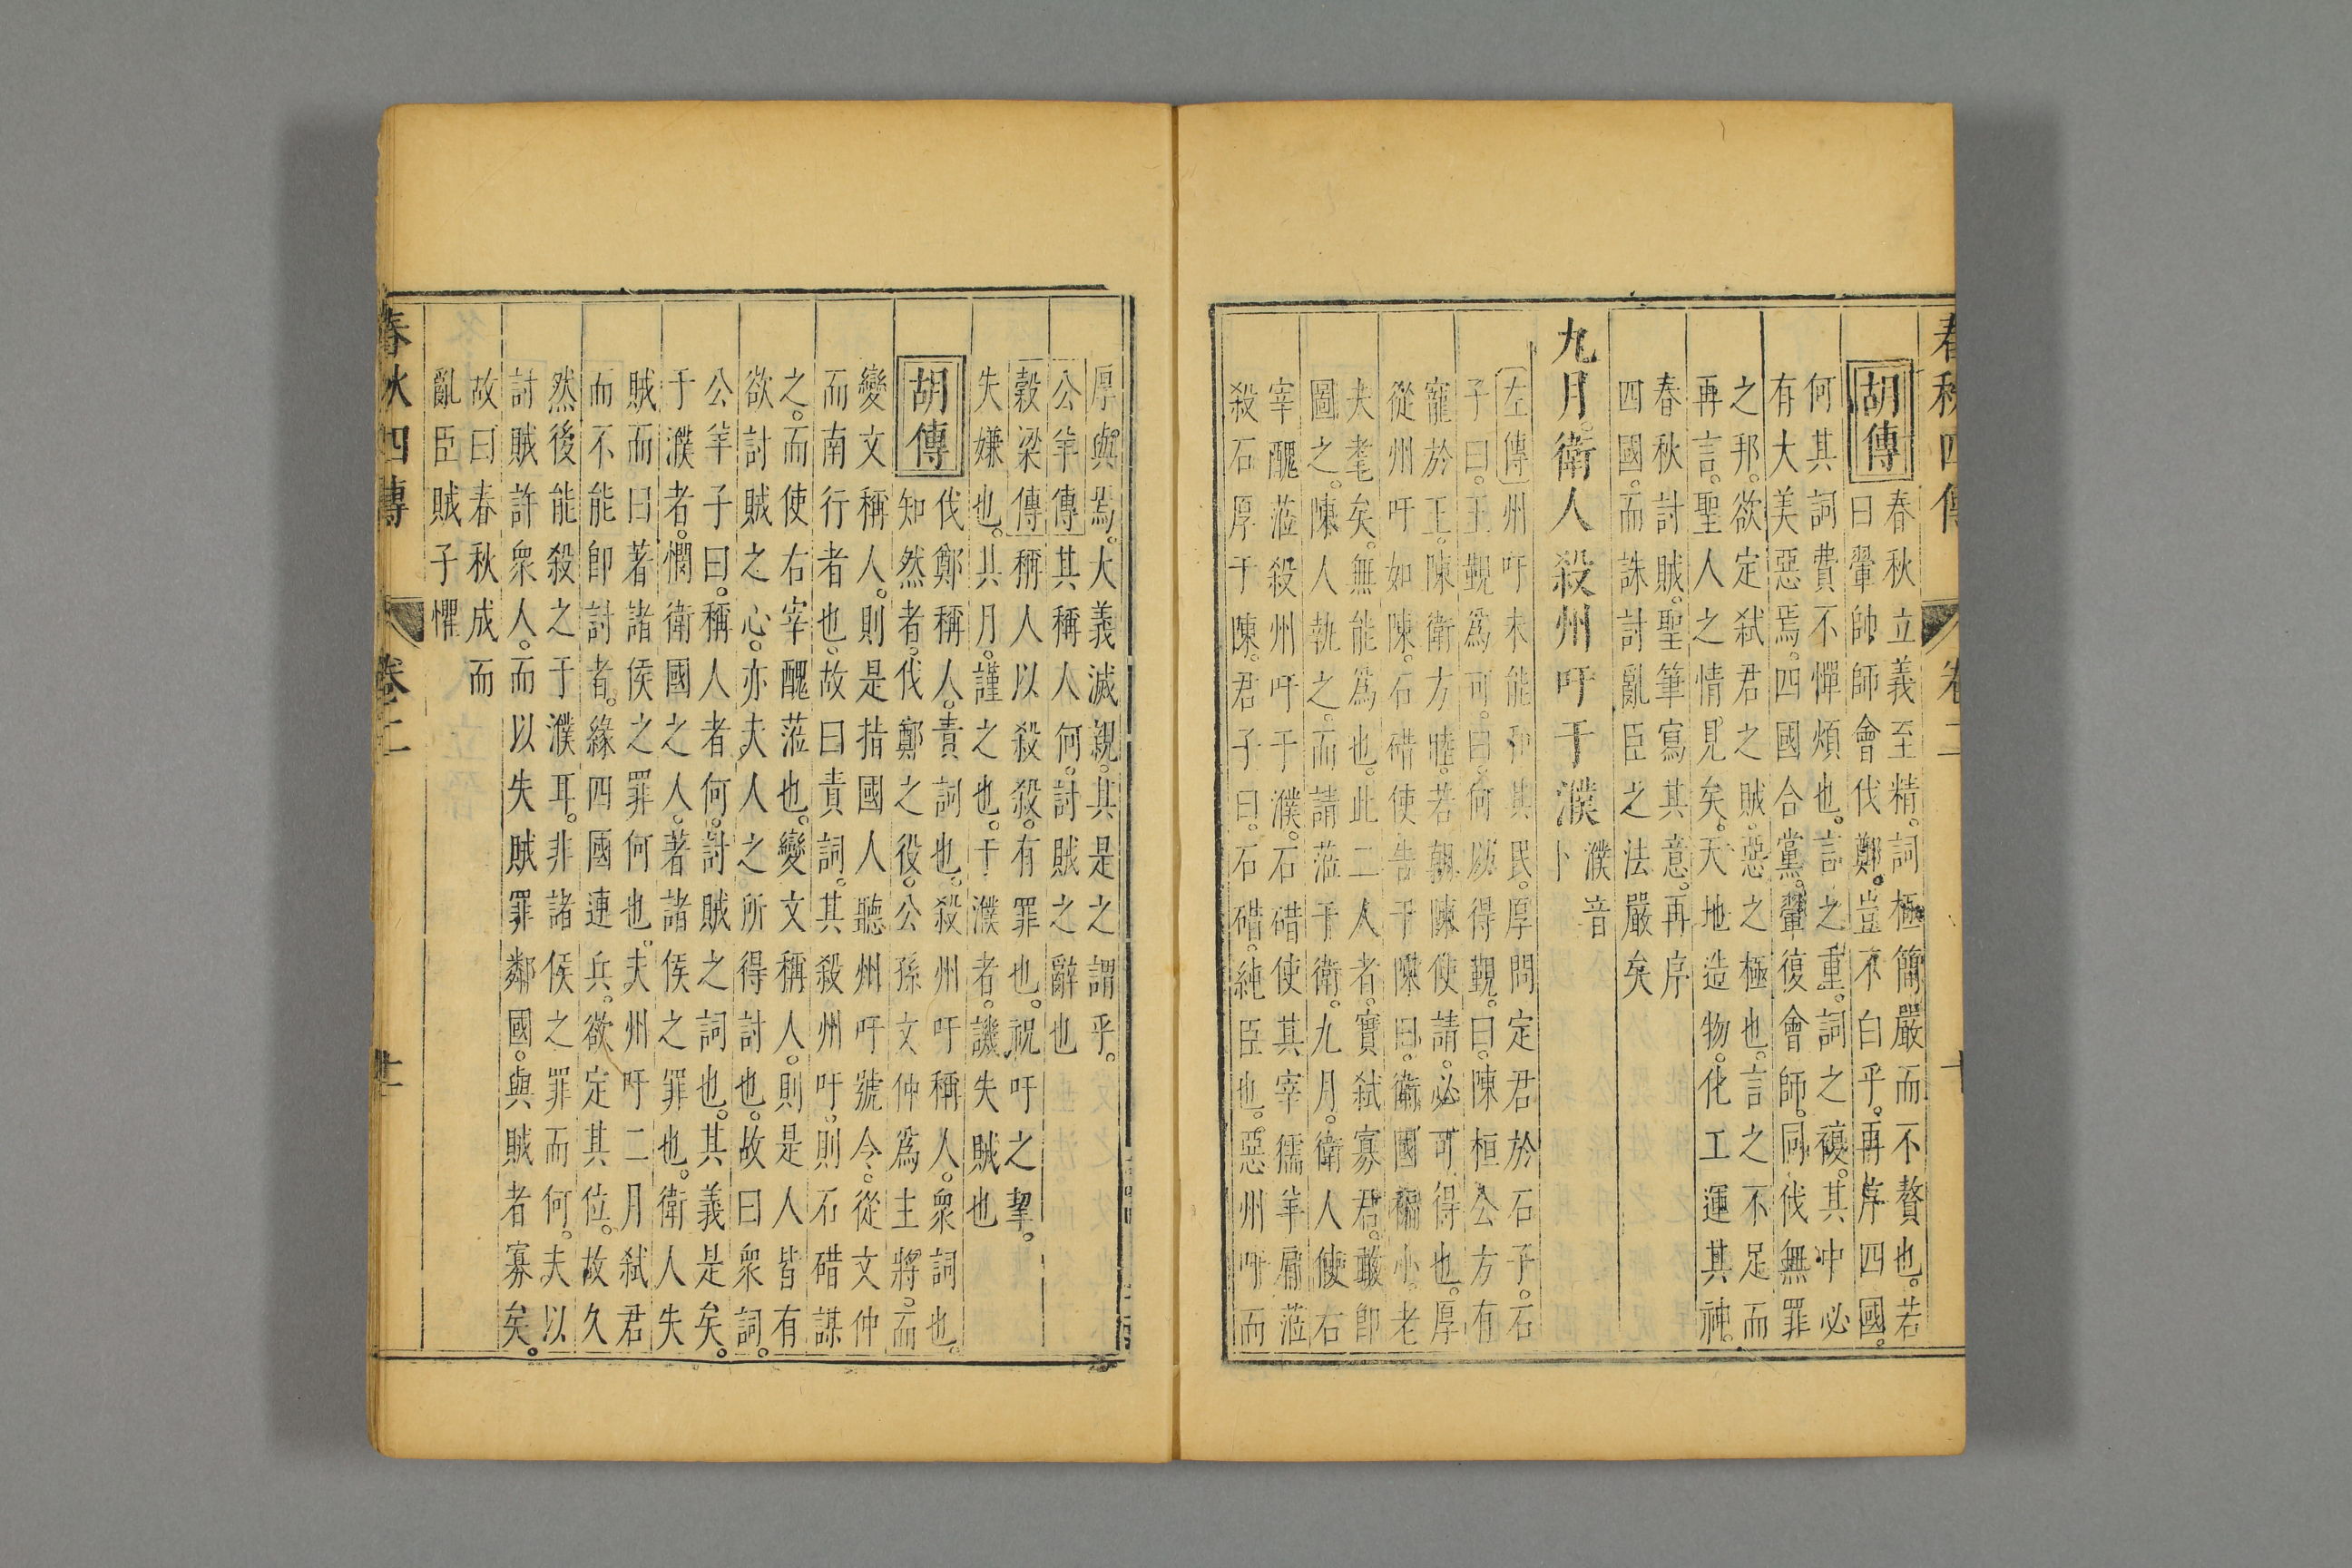 春秋四傳 卷二 十
胡傳 春秋立義至精。詞極簡嚴而不贅也。若
曰翬帥師會伐鄭。豈不白乎。再序四國。
何其詞費不憚煩也。言之重。詞之複。其中必
有大美惡焉。四國合黨。翬復會師。同伐無罪
之邦。欲定弒君之賊。惡之極也。言之不足而
再言。聖人之情見矣。天地造物。化工運其神。
春秋討賊。聖筆寫其意。再序
四國。而誅討亂臣之法嚴矣
九月。衛人殺州吁于濮 濮音卜
左傳 州吁未能和其民。厚問定君於石子。石
子曰。王覲爲可。曰。何以得覲。曰。陳桓公方有
寵於王。陳衛方睦。若朝陳使請。必可得也。厚
從州吁如陳。石碏使告于陳曰。衛國褊小。老
夫耄矣。無能爲也。此二人者。實弒寡君。敢即
圖之。陳人執之。而請蒞于衛。九月。衛人使右
宰醜蒞殺州吁于濮。石碏使其宰獳羊肩蒞
殺石厚于陳。君子曰。石碏。純臣也。惡州吁而
厚與焉。大義滅親。其是之謂乎。
公羊傳 其稱人何。討賊之辭也
穀梁傳 稱人以殺。殺有罪也。祝吁之挈。
失嫌也。其月。謹之也。于濮者。譏失賊也
胡傳 伐鄭稱人。責詞也。殺州吁稱人。衆詞也。
知然者。伐鄭之役。公孫文仲爲主將。而
變文稱人。則是指國人聽州吁號令。從文仲
而南行者也。故曰責詞。其殺州吁。則石碏謀
之。而使右宰醜蒞也。變文稱人。則是人皆有
欲討賊之心。亦夫人之所得討也。故曰衆詞。
公羊子曰。稱人者何。討賊之詞也。其義是矣。
于濮者。憫衛國之人。著諸侯之罪也。衛人失
賊而曰著諸侯之罪何也。夫州吁二月弒君
而不能即討者。緣四國連兵。欲定其位。故久
然後能殺之于濮耳。非諸侯之罪而何。夫以
討賊許衆人。而以失賊罪鄰國。與賊者寡矣。
故曰春秋成而
亂臣賊子懼
春秋四傳 卷二 十一